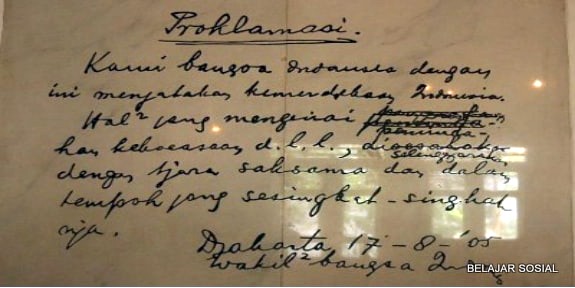 Proklamasi.
Kami bangsa Indonesia dengan
ini menjatakan kemerdekaan Indonesia.
Hal² jang mengenai
d.l.l.,
selenggarakan
dengan tjara saksama dan dalam
tempoh jang sesingkat-singkat
nja.
Djakarta 17-8-'05
Wakil² bangsa
BELAJAR SOSIAL